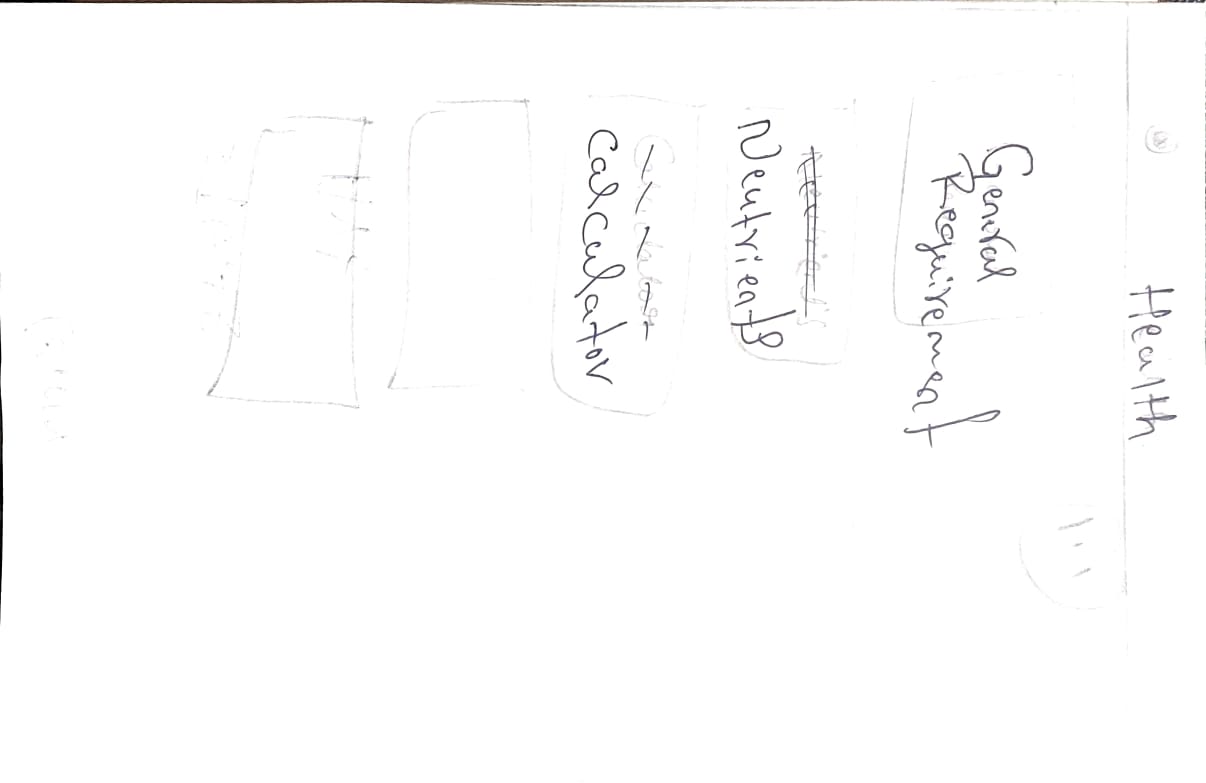 Health
General
Requirement
Neutrients
Calculator